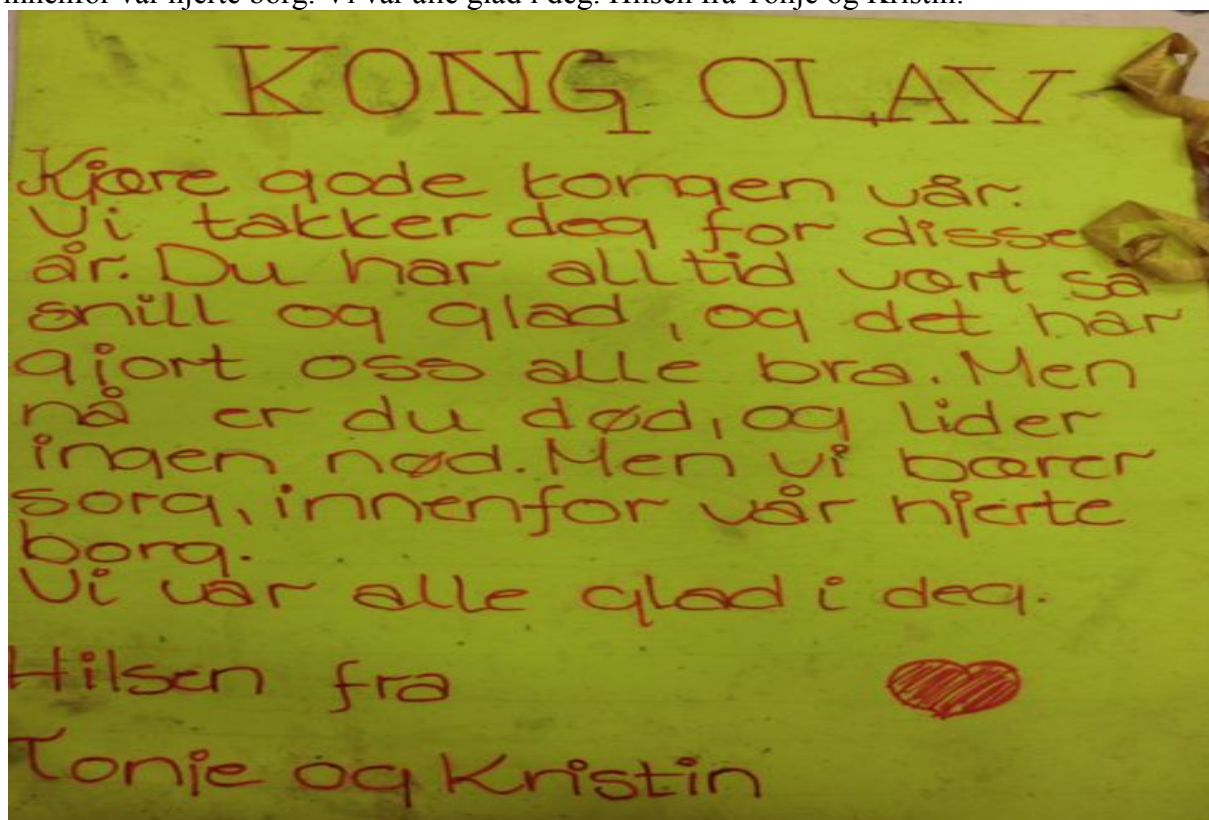 innenfor vår hjerte borg. Vi var alle glad i deg. Hilsen fra Tonje og Kristin.
KONG OLAV
Kjære gode kongen vår.
Vi takker deg for disse
år. Du har alltid vært så
snill og glad, og det har
gjort oss alle bra. Men
nå er du død, og lider
ingen nød. Men vi bærer
sorg, innenfor vår hjerte
borg.
Vi var alle glad i deg.
Hilsen fra
Tonje og Kristin